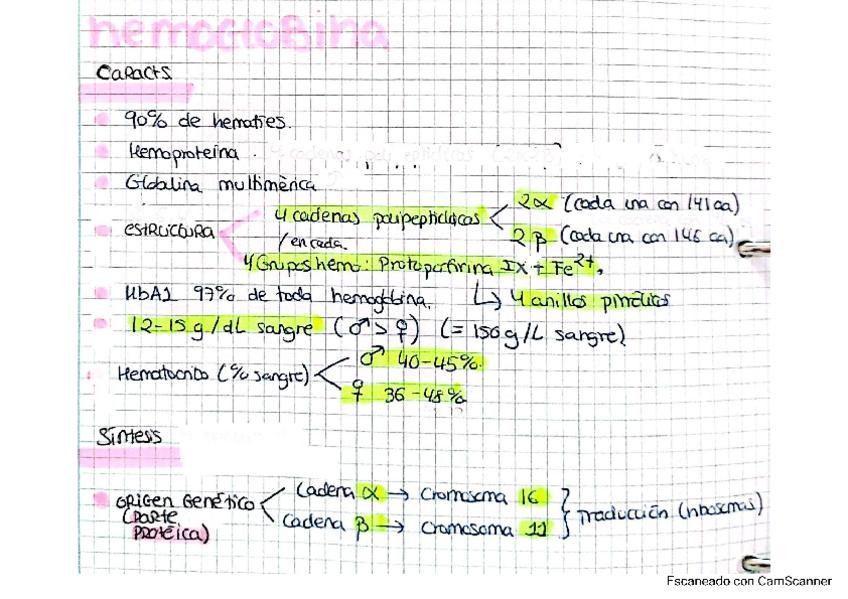 hemoglobina
Caracts
90% de hematies.
Hemoproteína.
Globulina multimérica
ESTRUCTURA
4 cadenas polipeptídicas
2α (cada una con 141 aa)
2β (cada una con 146 aa)
/ en cada.
4 Grupos hem: Protoporfirina IX + Fe2+,
4 anillos pirrólicos
HbA1 97% de toda hemoglobina.
12-15 g/dL sangre (♂>♀) (= 150 g/L sangre)
Hematocrito (% sangre)
♂ 40-45%.
♀ 36-48%
Síntesis
ORIGEN Genético
(PARTE
PROTÉICA)
Cadena α → Cromosoma 16
Cadena β → Cromosoma 11
Traducción (ribosomas)
Escaneado con CamScanner